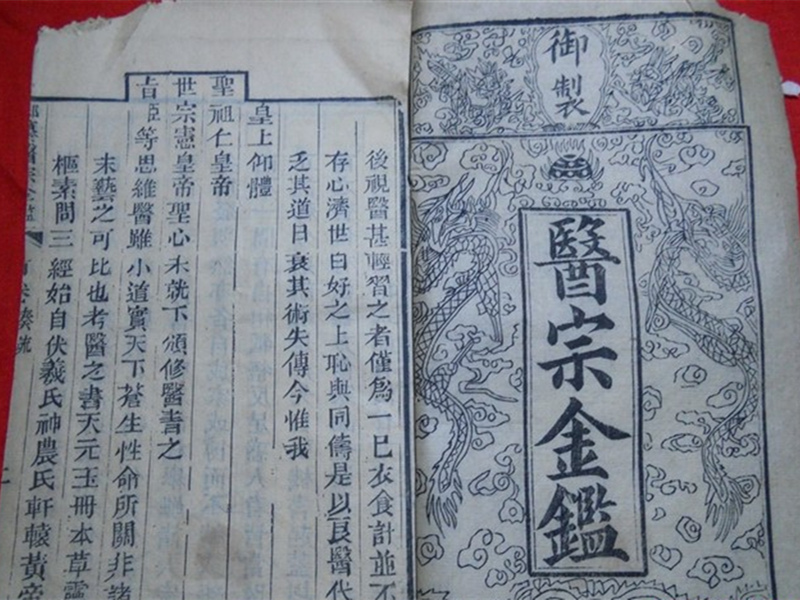 御製
醫宗金鑑
後視醫甚輕習之者僅為一已衣食計並不
存心濟世自好之上恥與同儔是以良醫代
乏其道日衰其術失傳今惟我
皇上仰體
聖祖仁皇帝
世宗憲皇帝聖心未就下頒修醫書之
旨臣等思維醫雖小道實天下蒼生性命所關非諸
末藝之可比也考醫之書天元玉冊本草靈
樞素問三經始自伏羲氏神農氏軒轅黃帝
卷奏疏